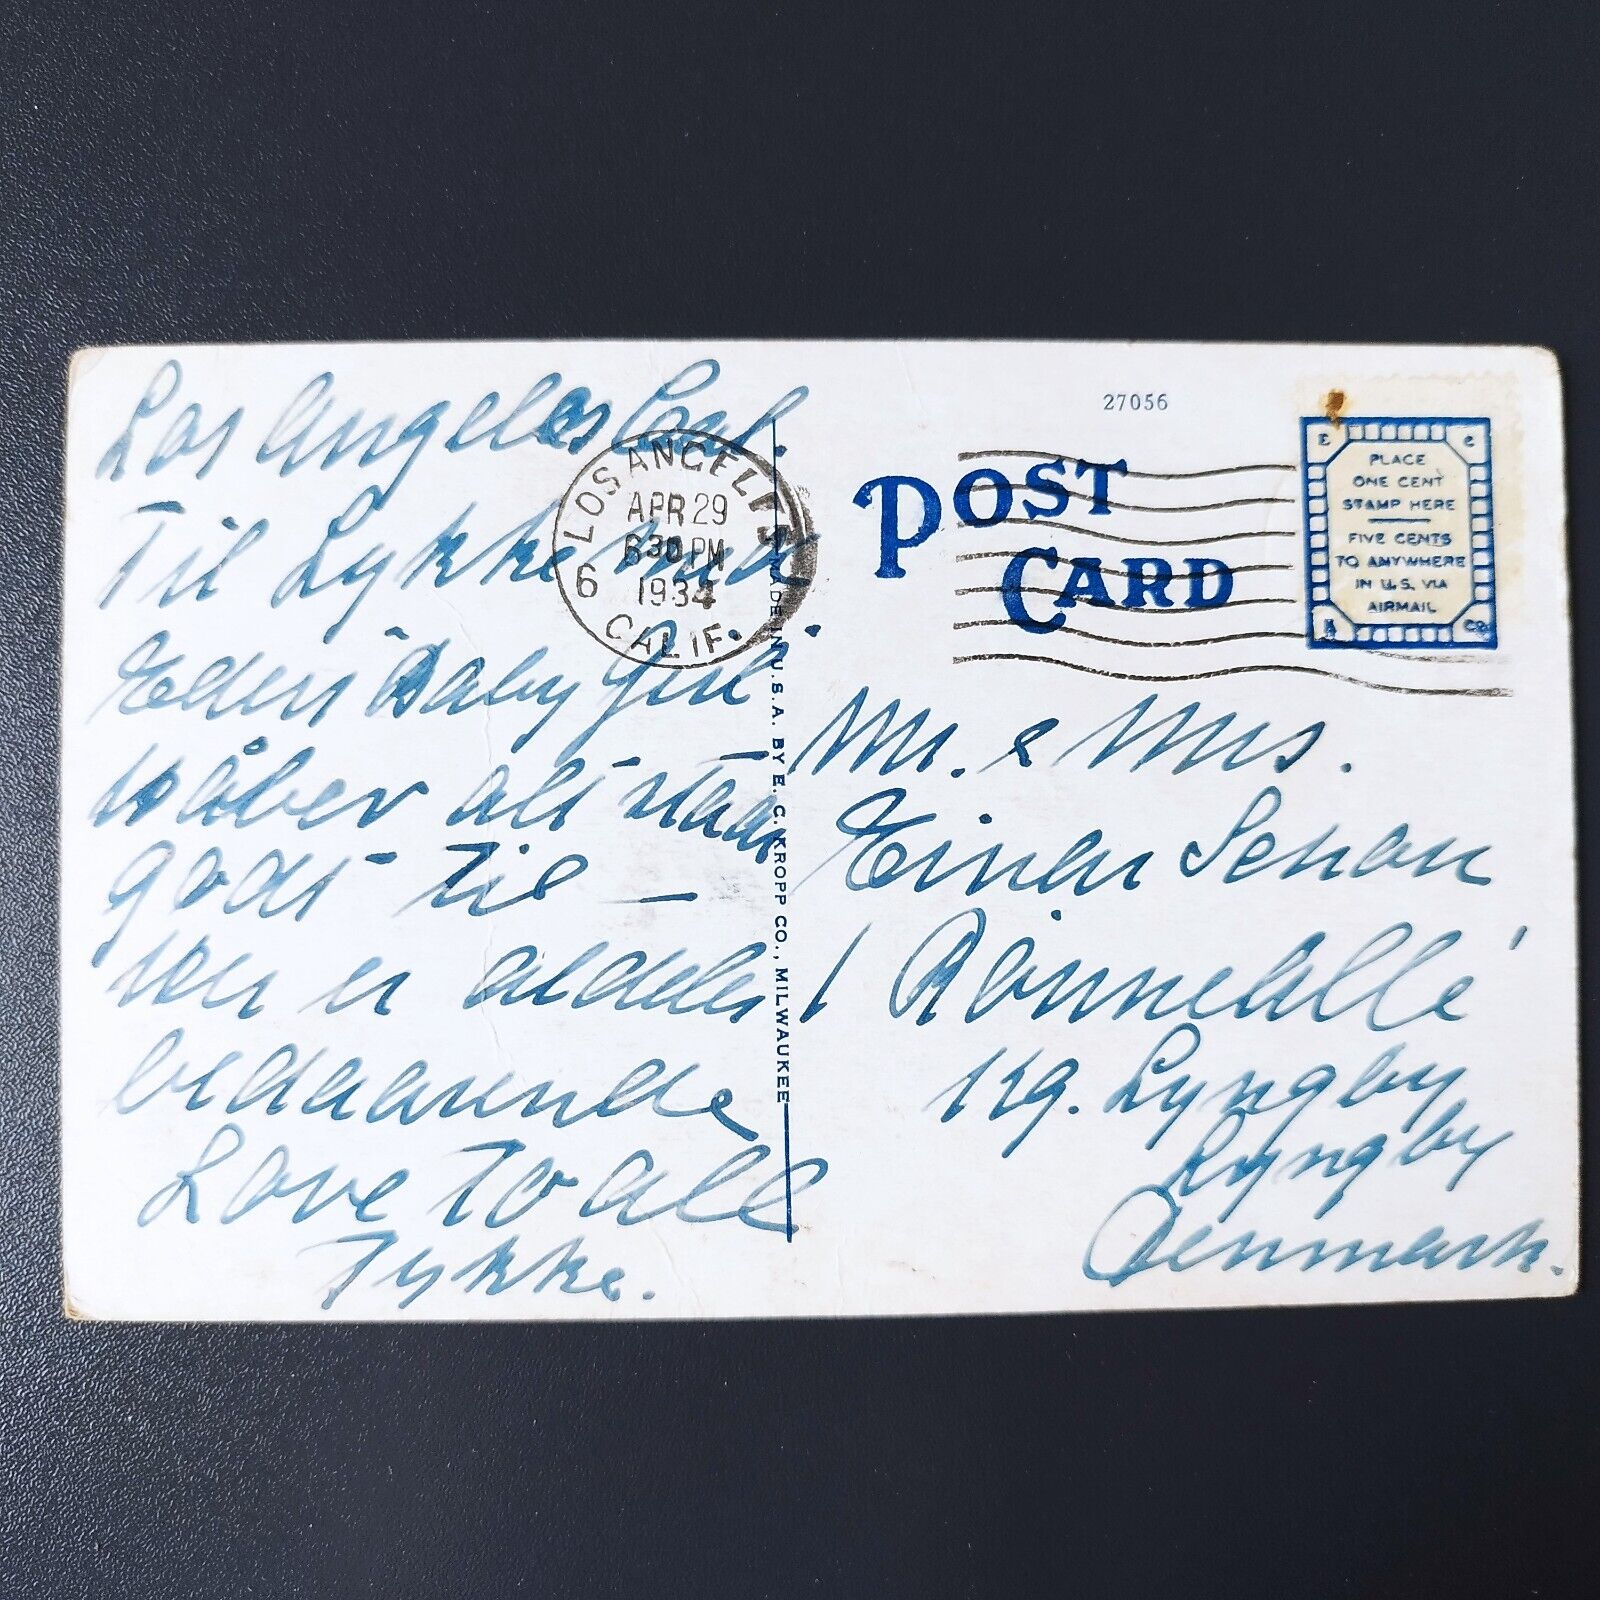 Los Angeles Cal.
Til Lykke med
Eders Baby Girl
håber alt staar
godt til —
her er aldeles
bedaarende
Love to all
Tykke.
LOS ANGELES
APR 29
630 PM
1934
6
CALIF.
MADE IN U.S.A. BY E. C. KROPP CO., MILWAUKEE
27056
POST
CARD
E C
PLACE
ONE CENT
STAMP HERE
FIVE CENTS
TO ANYWHERE
IN U.S. VIA
AIRMAIL
K CO.
Mr. & Mrs.
Einar
1 Rönnealle
Kg. Lyngby
Lyngby
Denmark.